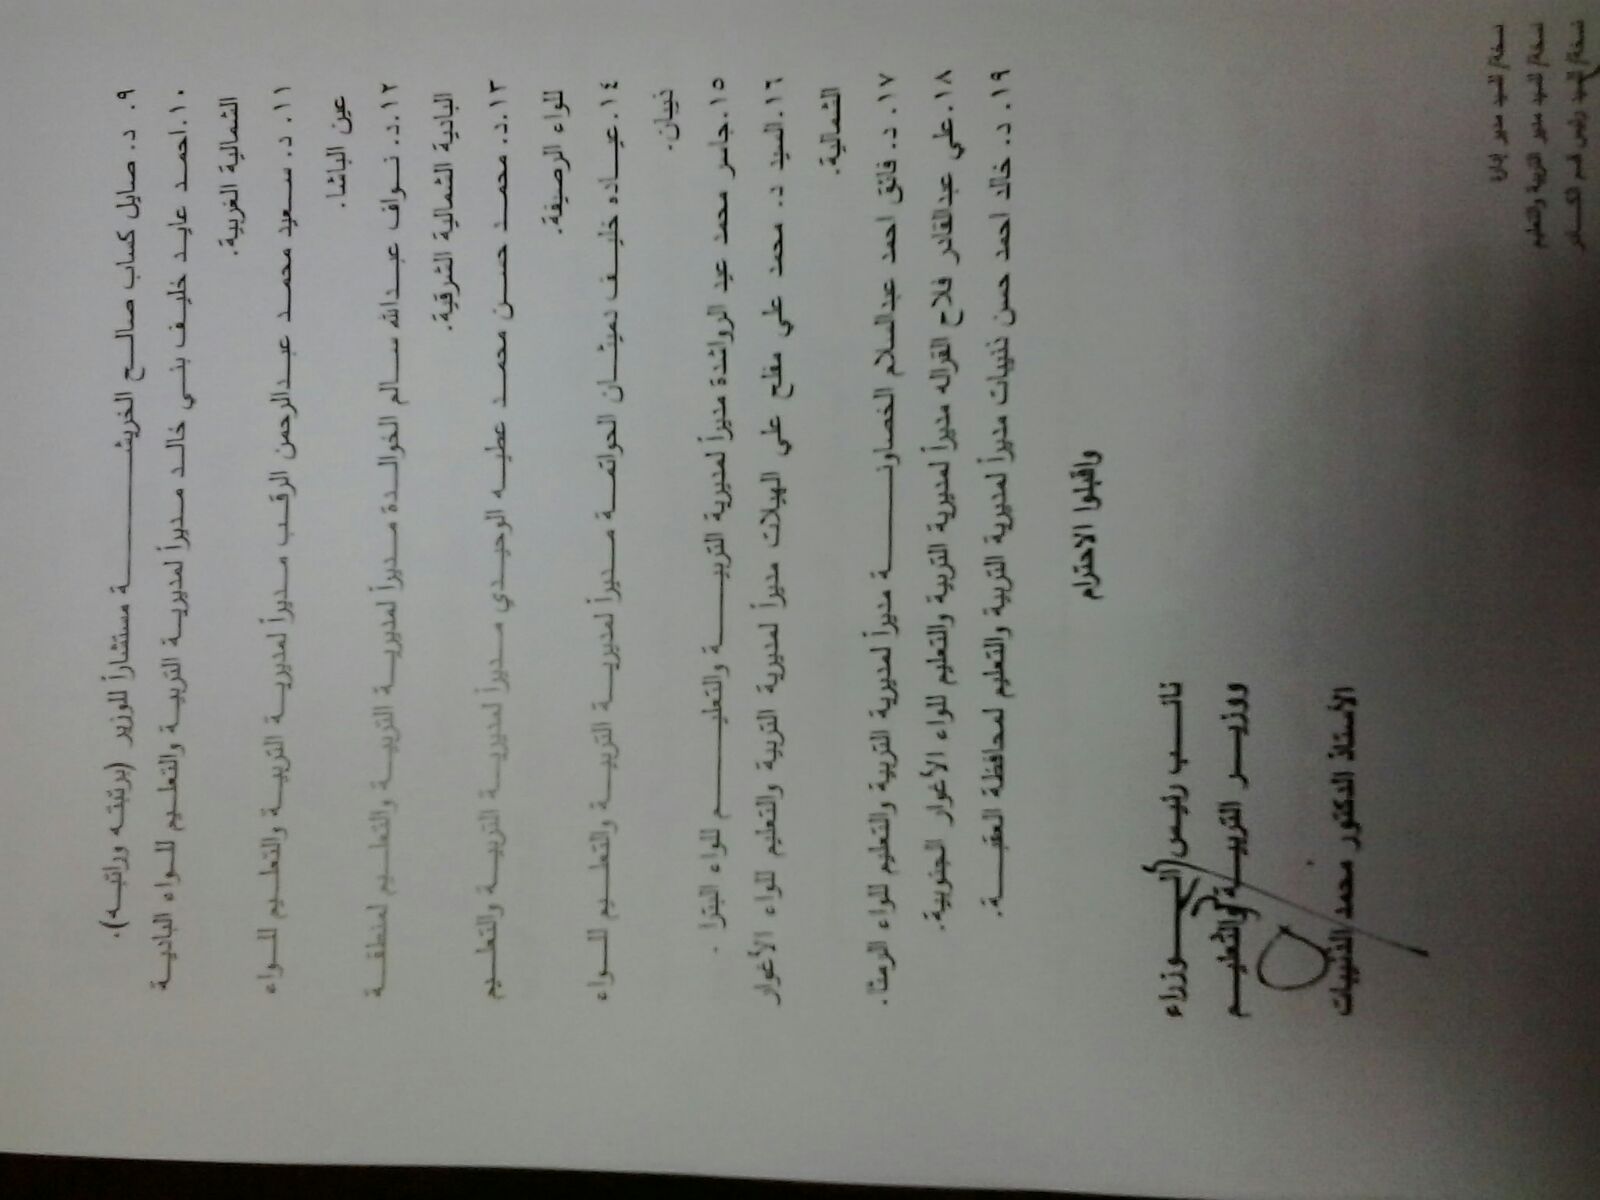 ٩. د. صايل كساب صالح الخريشة مستشاراً للوزير (برتبته وراتبه).
١٠. احمد عايد خليف بني خالد مديراً لمديرية التربية والتعليم للواء البادية
الشمالية الغربية.
١١. د. سعيد محمد عبدالرحمن الرقب مديراً لمديرية التربية والتعليم للواء
عين الباشا.
١٢. د. نواف عبدالله سالم الخوالدة مديراً لمديرية التربية والتعليم لمنطقة
البادية الشمالية الشرقية.
١٣. د. محمد حسن محمد عطيه الوحيدي مديراً لمديرية التربية والتعليم
للواء الرصيفة.
١٤. عياده خليف دميثان الحواتمة مديراً لمديرية التربية والتعليم للواء
ذيبان.
١٥. جاسر محمد عيد الرواشدة مديراً لمديرية التربية والتعليم للواء البترا.
١٦. السيد د. محمد علي مفلح علي الهيلات مديراً لمديرية التربية والتعليم للواء الأغوار
الشمالية.
١٧. د. فائق احمد عبدالسلام الخصاونة مديراً لمديرية التربية والتعليم للواء الرمثا.
١٨. علي عبدالقادر فلاح القراله مديراً لمديرية التربية والتعليم للواء الأغوار الجنوبية.
١٩. د. خالد احمد حسن ذنيبات مديراً لمديرية التربية والتعليم لمحافظة العقبة.
واقبلوا الاحترام
نائب رئيس الوزراء
ووزير التربية والتعليم
الأستاذ الدكتور محمد الذنيبات
نسخة/ للسيد مدير إدارة
نسخة/ للسيد مدير التربية والتعليم
نسخة/ للسيد رئيس قسم